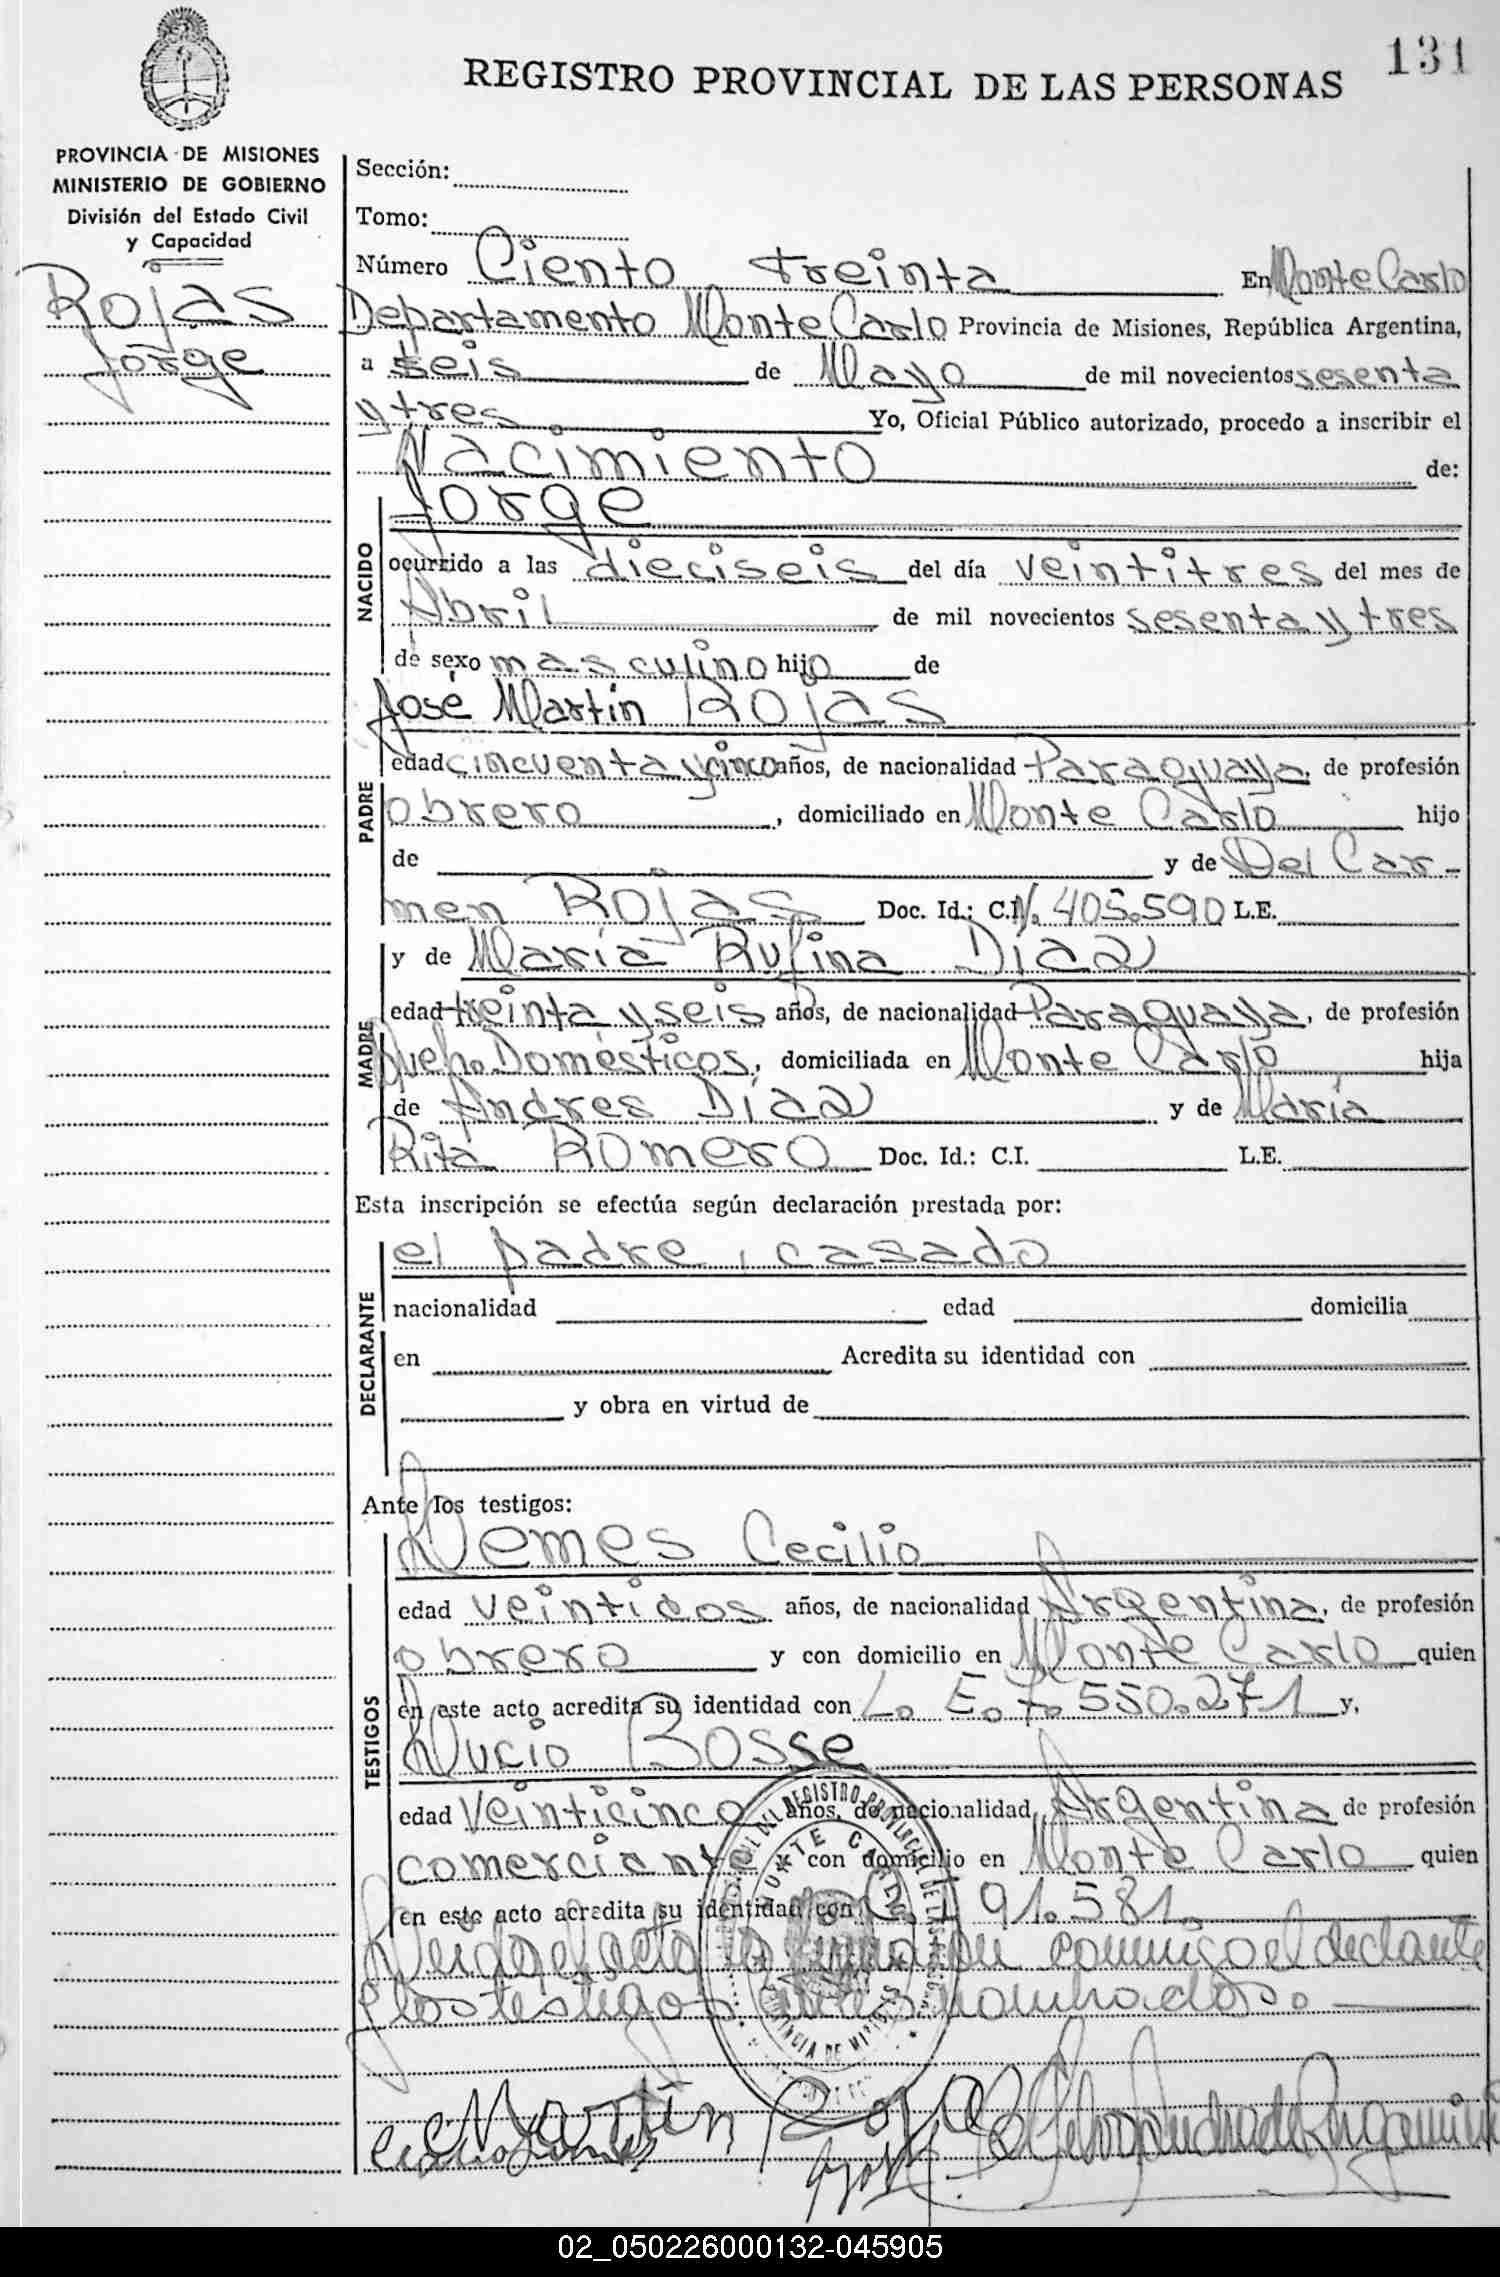 131
REGISTRO PROVINCIAL DE LAS PERSONAS
PROVINCIA DE MISIONES
MINISTERIO DE GOBIERNO
División del Estado Civil
y Capacidad
Rojas
Jorge
Sección:
Tomo:
Número Ciento treinta En Monte Carlo
Departamento Monte Carlo Provincia de Misiones, República Argentina,
a seis de Mayo de mil novecientos sesenta
y tres Yo, Oficial Público autorizado, procedo a inscribir el
Nacimiento de:
NACIDO
Jorge
ocurrido a las dieciseis del día veintitres del mes de
Abril de mil novecientos sesenta y tres
de sexo masculino hijo de
José Martín Rojas
PADRE
edad cincuenta y cinco años, de nacionalidad Paraguaya, de profesión
obrero, domiciliado en Monte Carlo hijo
de y de Del Car-
men Rojas Doc. Id.: C.I. N. 405.590 L.E.
MADRE
y de María Rufina Díaz
edad treinta y seis años, de nacionalidad Paraguaya, de profesión
Queh. Domésticos, domiciliada en Monte Carlo hija
de Andres Díaz y de María
Rita Romero Doc. Id.: C.I. L.E.
Esta inscripción se efectúa según declaración prestada por:
DECLARANTE
el padre, casado
nacionalidad edad domicilia
en Acredita su identidad con
y obra en virtud de
Ante los testigos:
TESTIGOS
Lemes Cecilio
edad veintidos años, de nacionalidad Argentina, de profesión
obrero y con domicilio en Monte Carlo quien
en este acto acredita su identidad con L. E. 7.550.271 y,
Lucio Bosse
edad veinticinco años, de nacionalidad Argentina de profesión
comerciante y con domicilio en Monte Carlo quien
en este acto acredita su identidad con C. I. 91.581.
Leida el acta la firman conmigo el declante
y los testigos antes nombrados.
DEL REGISTRO PROVINCIAL DE LAS
MONTE CARLO
PROVINCIA DE MISIONES
Martin Rojas
02_050226000132-045905